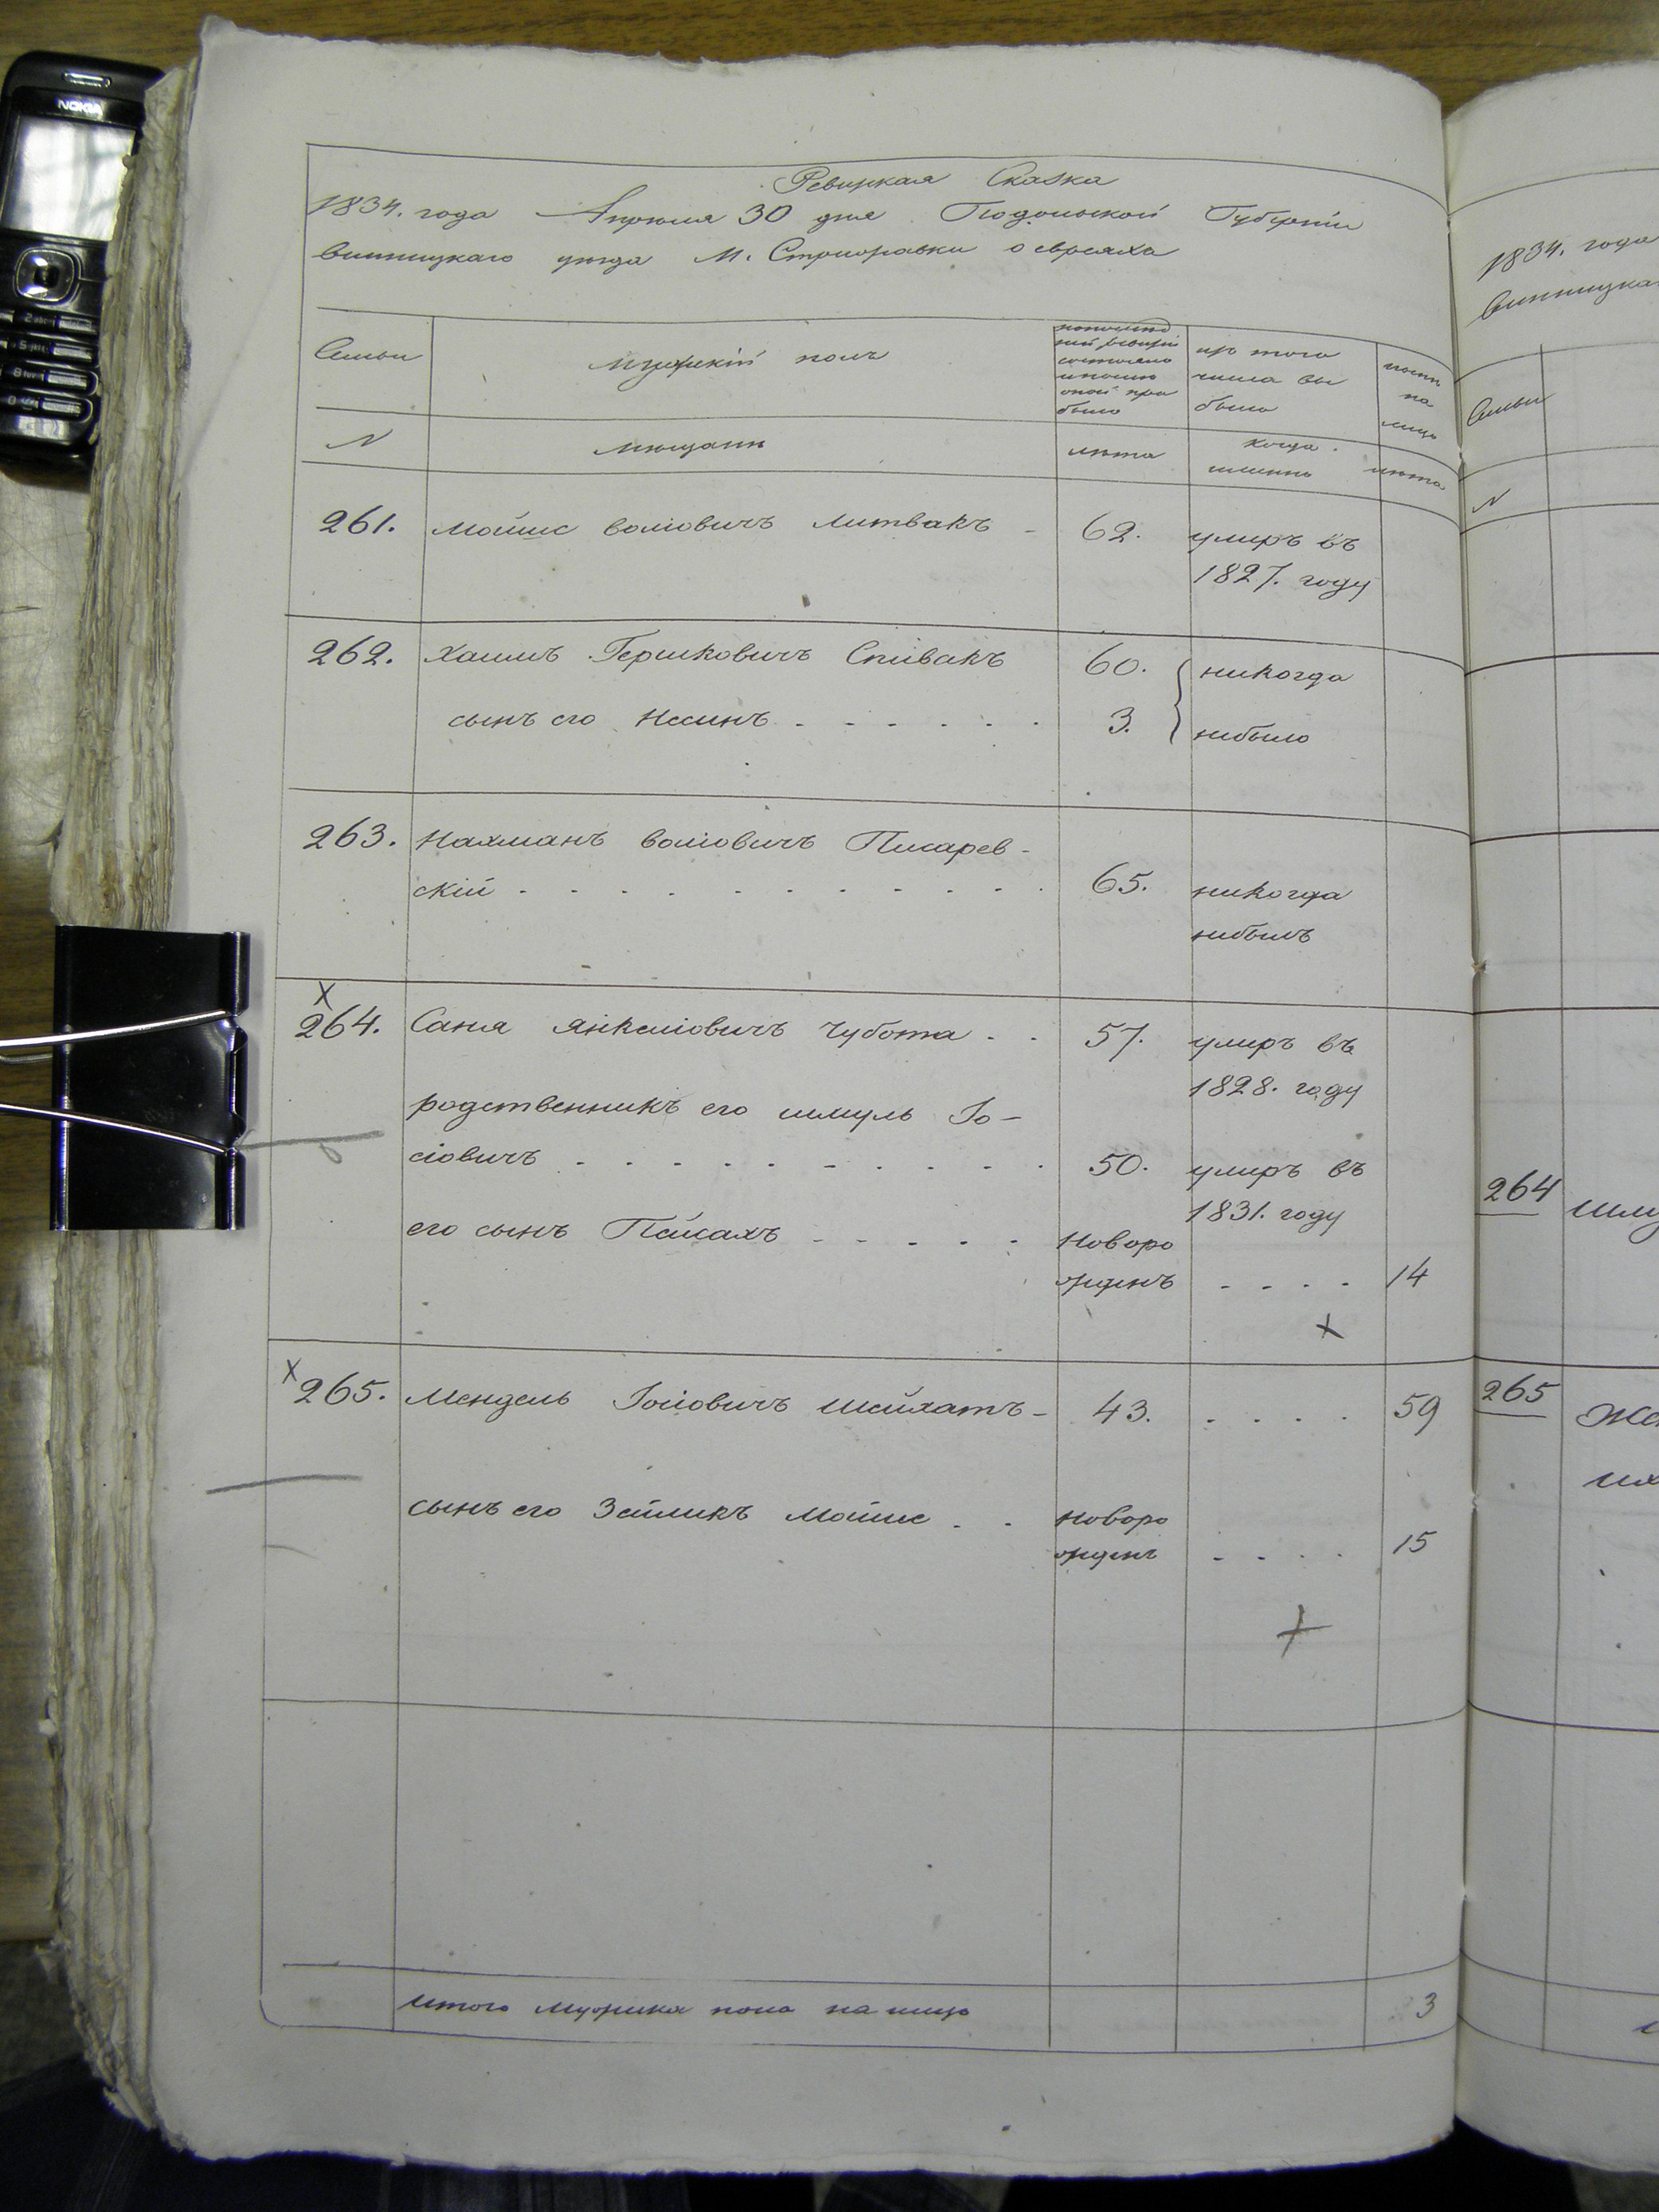 NOKIA
Ревизская Сказка
1834. года Апреля 30 дня Подольской Губернiи
1834. года
Винницкаго уезда М. Стрижавки о евреяхъ
Семьи
мужескiй полъ
по последней ревизiи состояло и после оной прибыло
изъ того числа выбыло
ныне на лицо
Семьи
N
мещане
лета
когда именно
лета
N
261. МошкоВолковичъ Литвакъ - 62. умеръ въ
1827. году
262. Хаимъ Гершковичъ Спивакъ 60. никогда
сынъ его Несинъ - - - - - - 3. небыло
263. Нахманъ Волковичъ Писарев-
скiй - - - - - - - - - - 65. никогда
небылъ
264. Саня Янкелiовичъ Чубота - - 57. умеръ въ
1828. году
родственникъ его Шмуль Iо-
сiовичъ - - - - - - - - - - 50. умеръ въ
1831. году
264
его сынъ Пейсахъ - - - - - новоро
жденъ - - - - 14
265. Мендель Iосiовичъ - 43. - - - - 59
265
сынъ его Зейликъ Мойше - - новоро
жденъ - - - - 15
итого мужеска пола на лицо 3